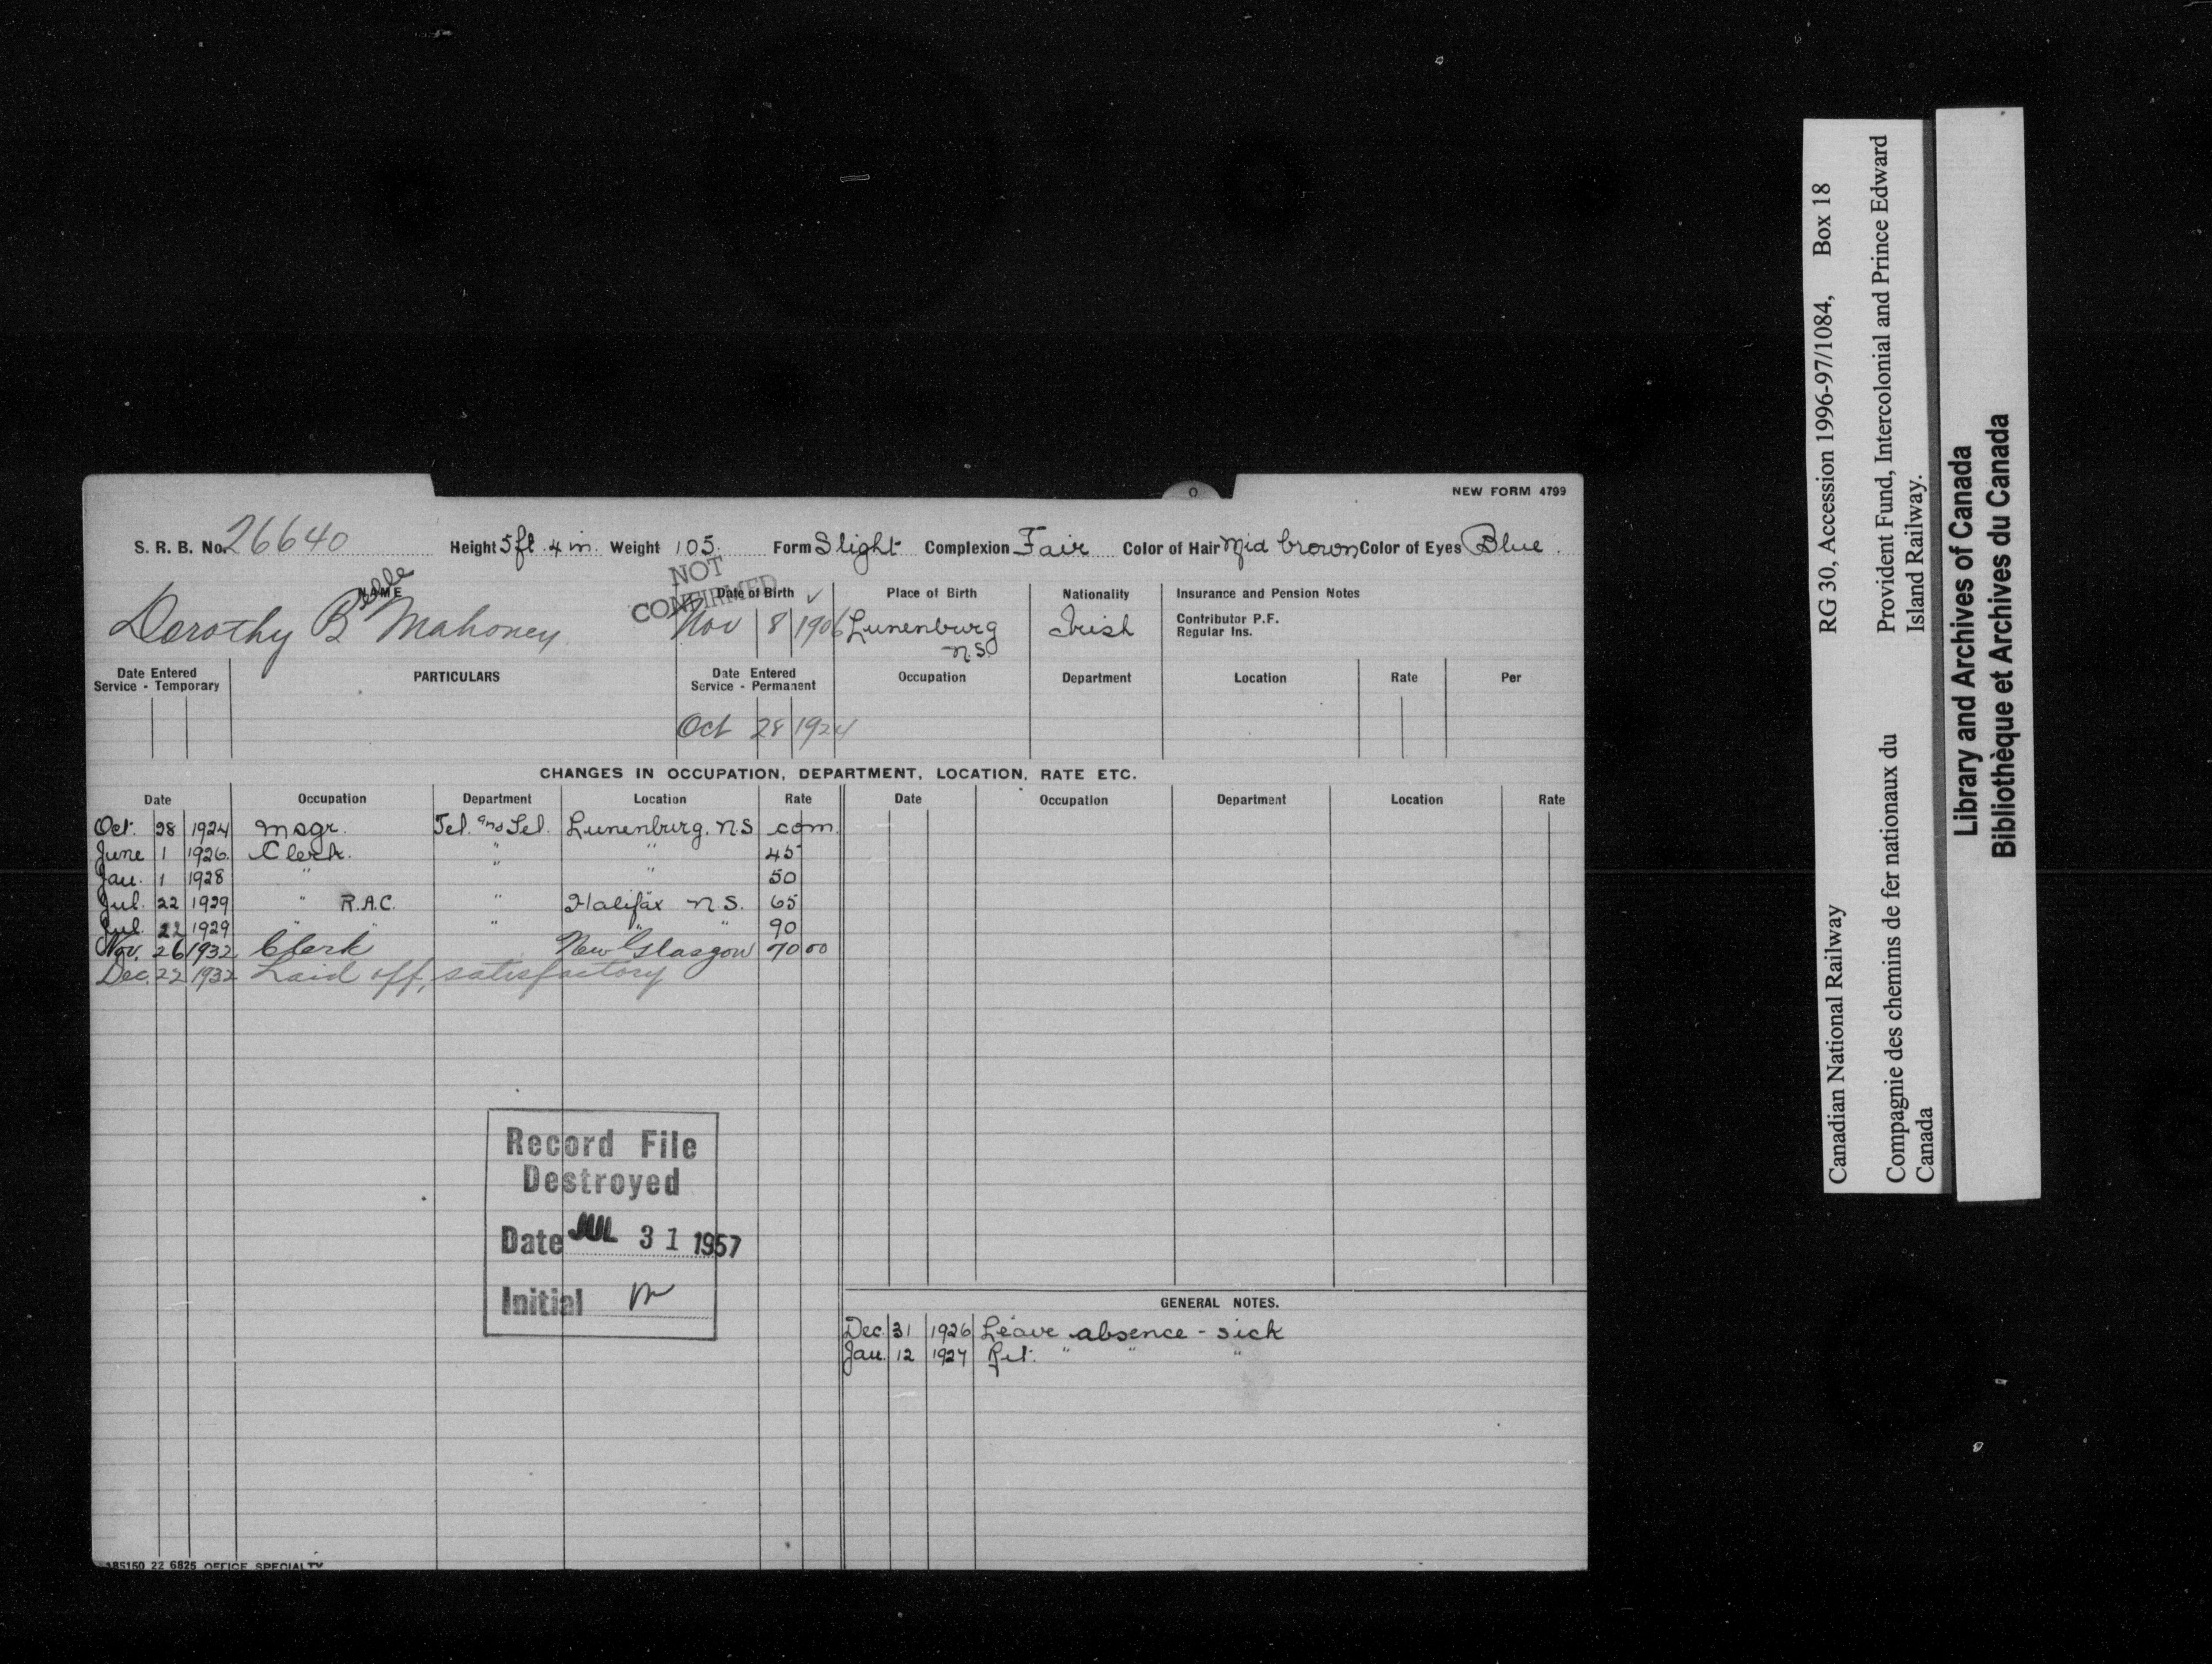 NEW FORM 4799
S. R. B. No. 26640 Height 5 ft. 4 in. Weight 105. Form Slight Complexion Fair Color of Hair Mid brown Color of Eyes Blue.
NOT CONFIRMED
NAME Date of Birth Place of Birth Nationality Insurance and Pension Notes
Dorothy Belle Mahoney Nov 8 1906 Lunenburg N.S. Irish
Contributor P.F.
Regular Ins.
Date Entered Service - Temporary PARTICULARS Date Entered Service - Permanent Occupation Department Location Rate Per
Oct 28 1924
CHANGES IN OCCUPATION, DEPARTMENT, LOCATION, RATE ETC.
Date Occupation Department Location Rate Date Occupation Department Location Rate
Oct. 28 1924 Msgr. Tel. and Tel. Lunenburg. N.S com.
June 1 1926. Clerk. " " 45
Jau. 1 1928 " " " 50
Jul. 22 1929 " R.A.C. " Halifax N.S. 65
Jul. 22 1929 " " " " 90
Nov. 26 1932 Clerk New Glasgow 70 00
Dec. 22 1932 Laid off, satisfactory
Record File
Destroyed
Date JUL 31 1957
Initial
GENERAL NOTES.
Dec. 31 1926 Leave absence - sick
Jau. 12 1927 Ret. " " "
185150 22 6825 OFFICE SPECIALTY
Canadian National Railway RG 30, Accession 1996-97/1084, Box 18
Compagnie des chemins de fer nationaux du Canada
Provident Fund, Intercolonial and Prince Edward Island Railway.
Library and Archives of Canada
Bibliothèque et Archives du Canada